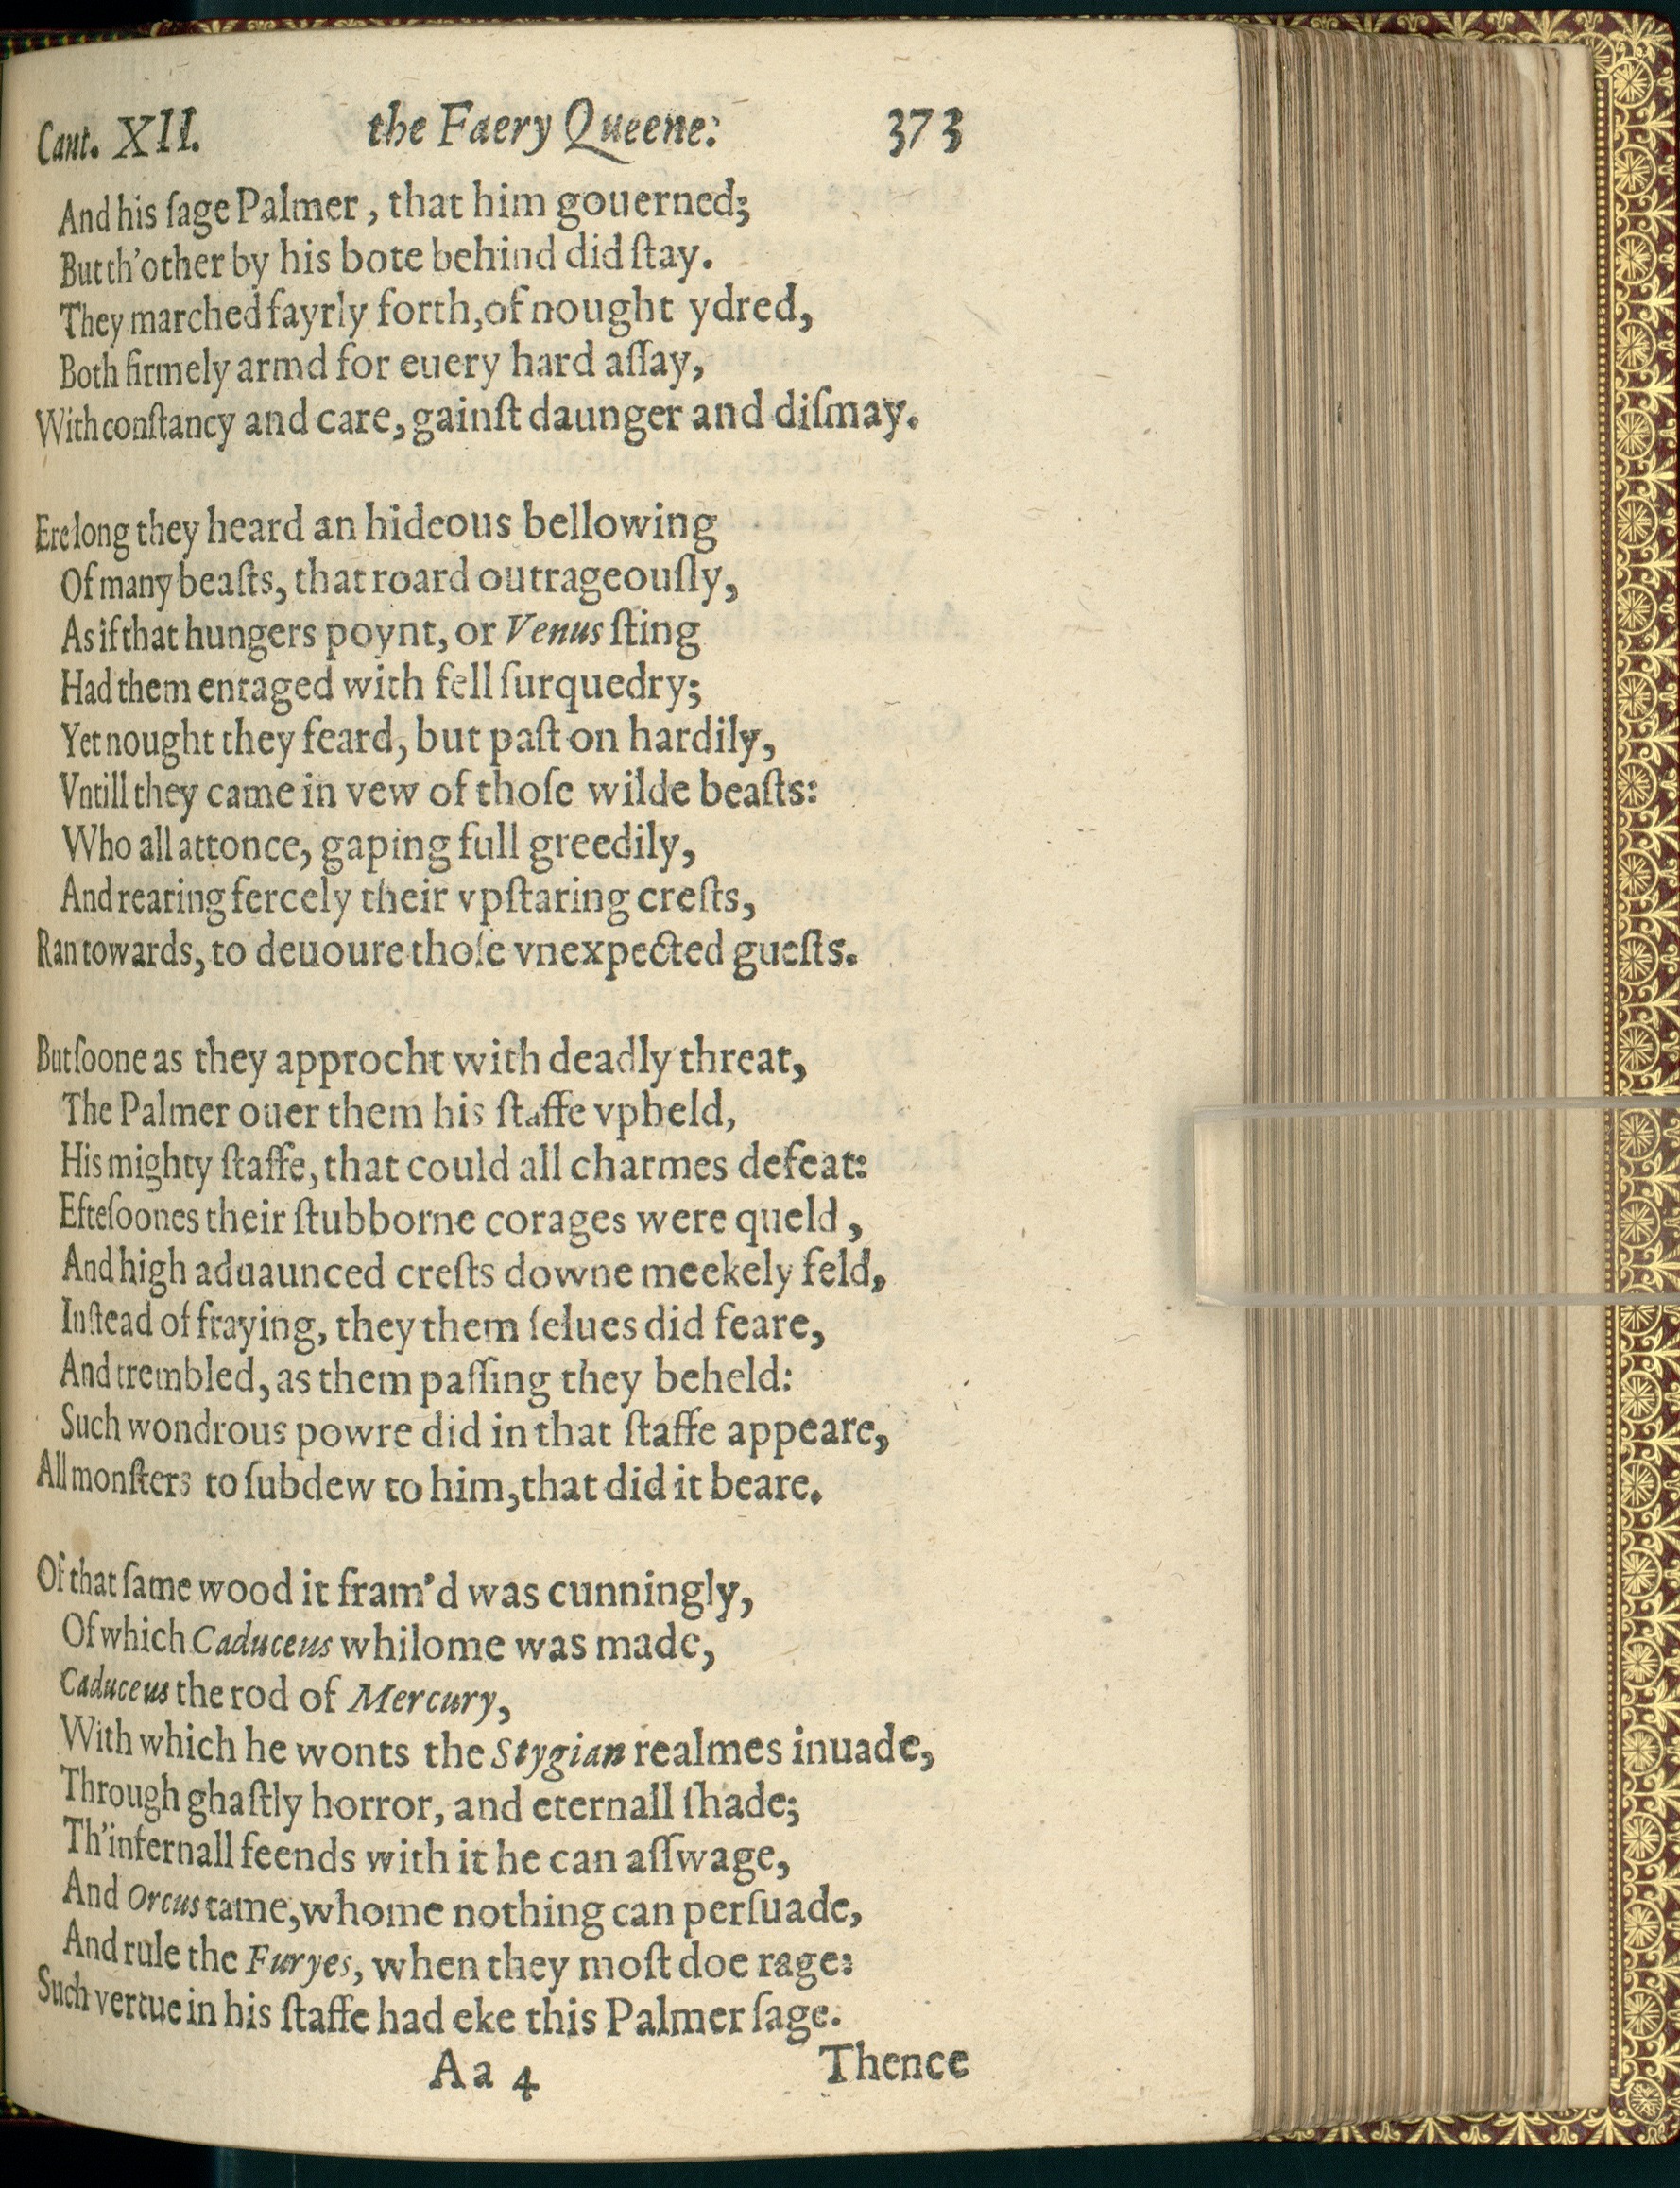 Cant. XII. the Faery Queene: 373
And his ſage Palmer, that him gouerned;
But th'other by his bote behind did ſtay.
They marched fayrly forth, of nought ydred,
Both firmely armd for euery hard aſſay,
With conſtancy and care, gainſt daunger and diſmay.
Ere long they heard an hideous bellowing
Of many beaſts, that roard outrageouſly,
As if that hungers poynt, or Venus ſting
Had them enraged with fell ſurquedry;
Yet nought they feard, but paſt on hardily,
Vntill they came in vew of thoſe wilde beaſts:
Who all attonce, gaping full greedily,
And rearing fercely their vpſtaring creſts,
Ran towards, to deuoure thoſe vnexpected gueſts.
But ſoone as they approcht with deadly threat,
The Palmer ouer them his ſtaffe vpheld,
His mighty ſtaffe, that could all charmes defeat:
Efteſoones their ſtubborne corages were queld,
And high aduaunced creſts downe meekely feld,
Inſtead of fraying, they them ſelues did feare,
And trembled, as them paſſing they beheld:
Such wondrous powre did in that ſtaffe appeare,
All monſters to ſubdew to him, that did it beare.
Of that ſame wood it fram'd was cunningly,
Of which Caduceus whilome was made,
Caduceus the rod of Mercury,
With which he wonts the Stygian realmes inuade,
Through ghaſtly horror, and eternall ſhade;
Th'infernall feends with it he can aſſwage,
And Orcus tame, whome nothing can perſuade,
And rule the Furyes, when they moſt doe rage:
Such vertue in his ſtaffe had eke this Palmer ſage.
Aa 4 Thence